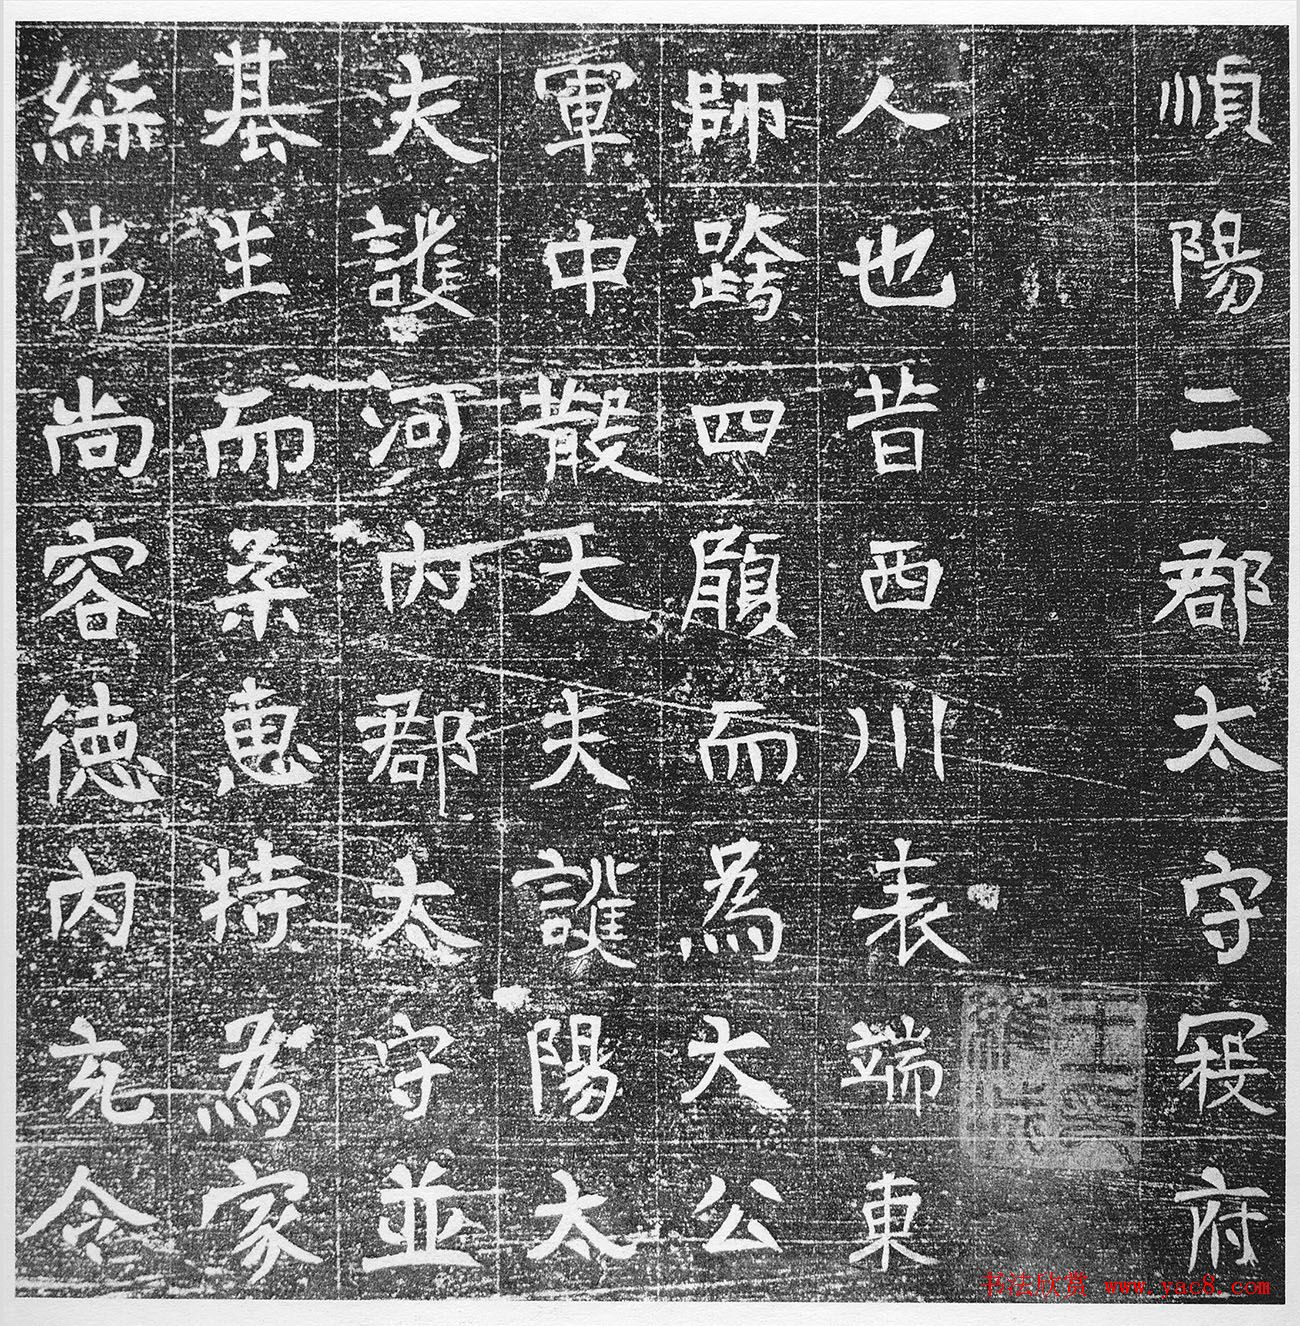 順陽二郡太守寇府
人也昔西川表端東
師跨四履而為大公
軍中散大夫譙陽太
夫譙河內郡太守並
基生而柔惠特為家
弗尚容德內充
书法欣赏 www.yac8.com